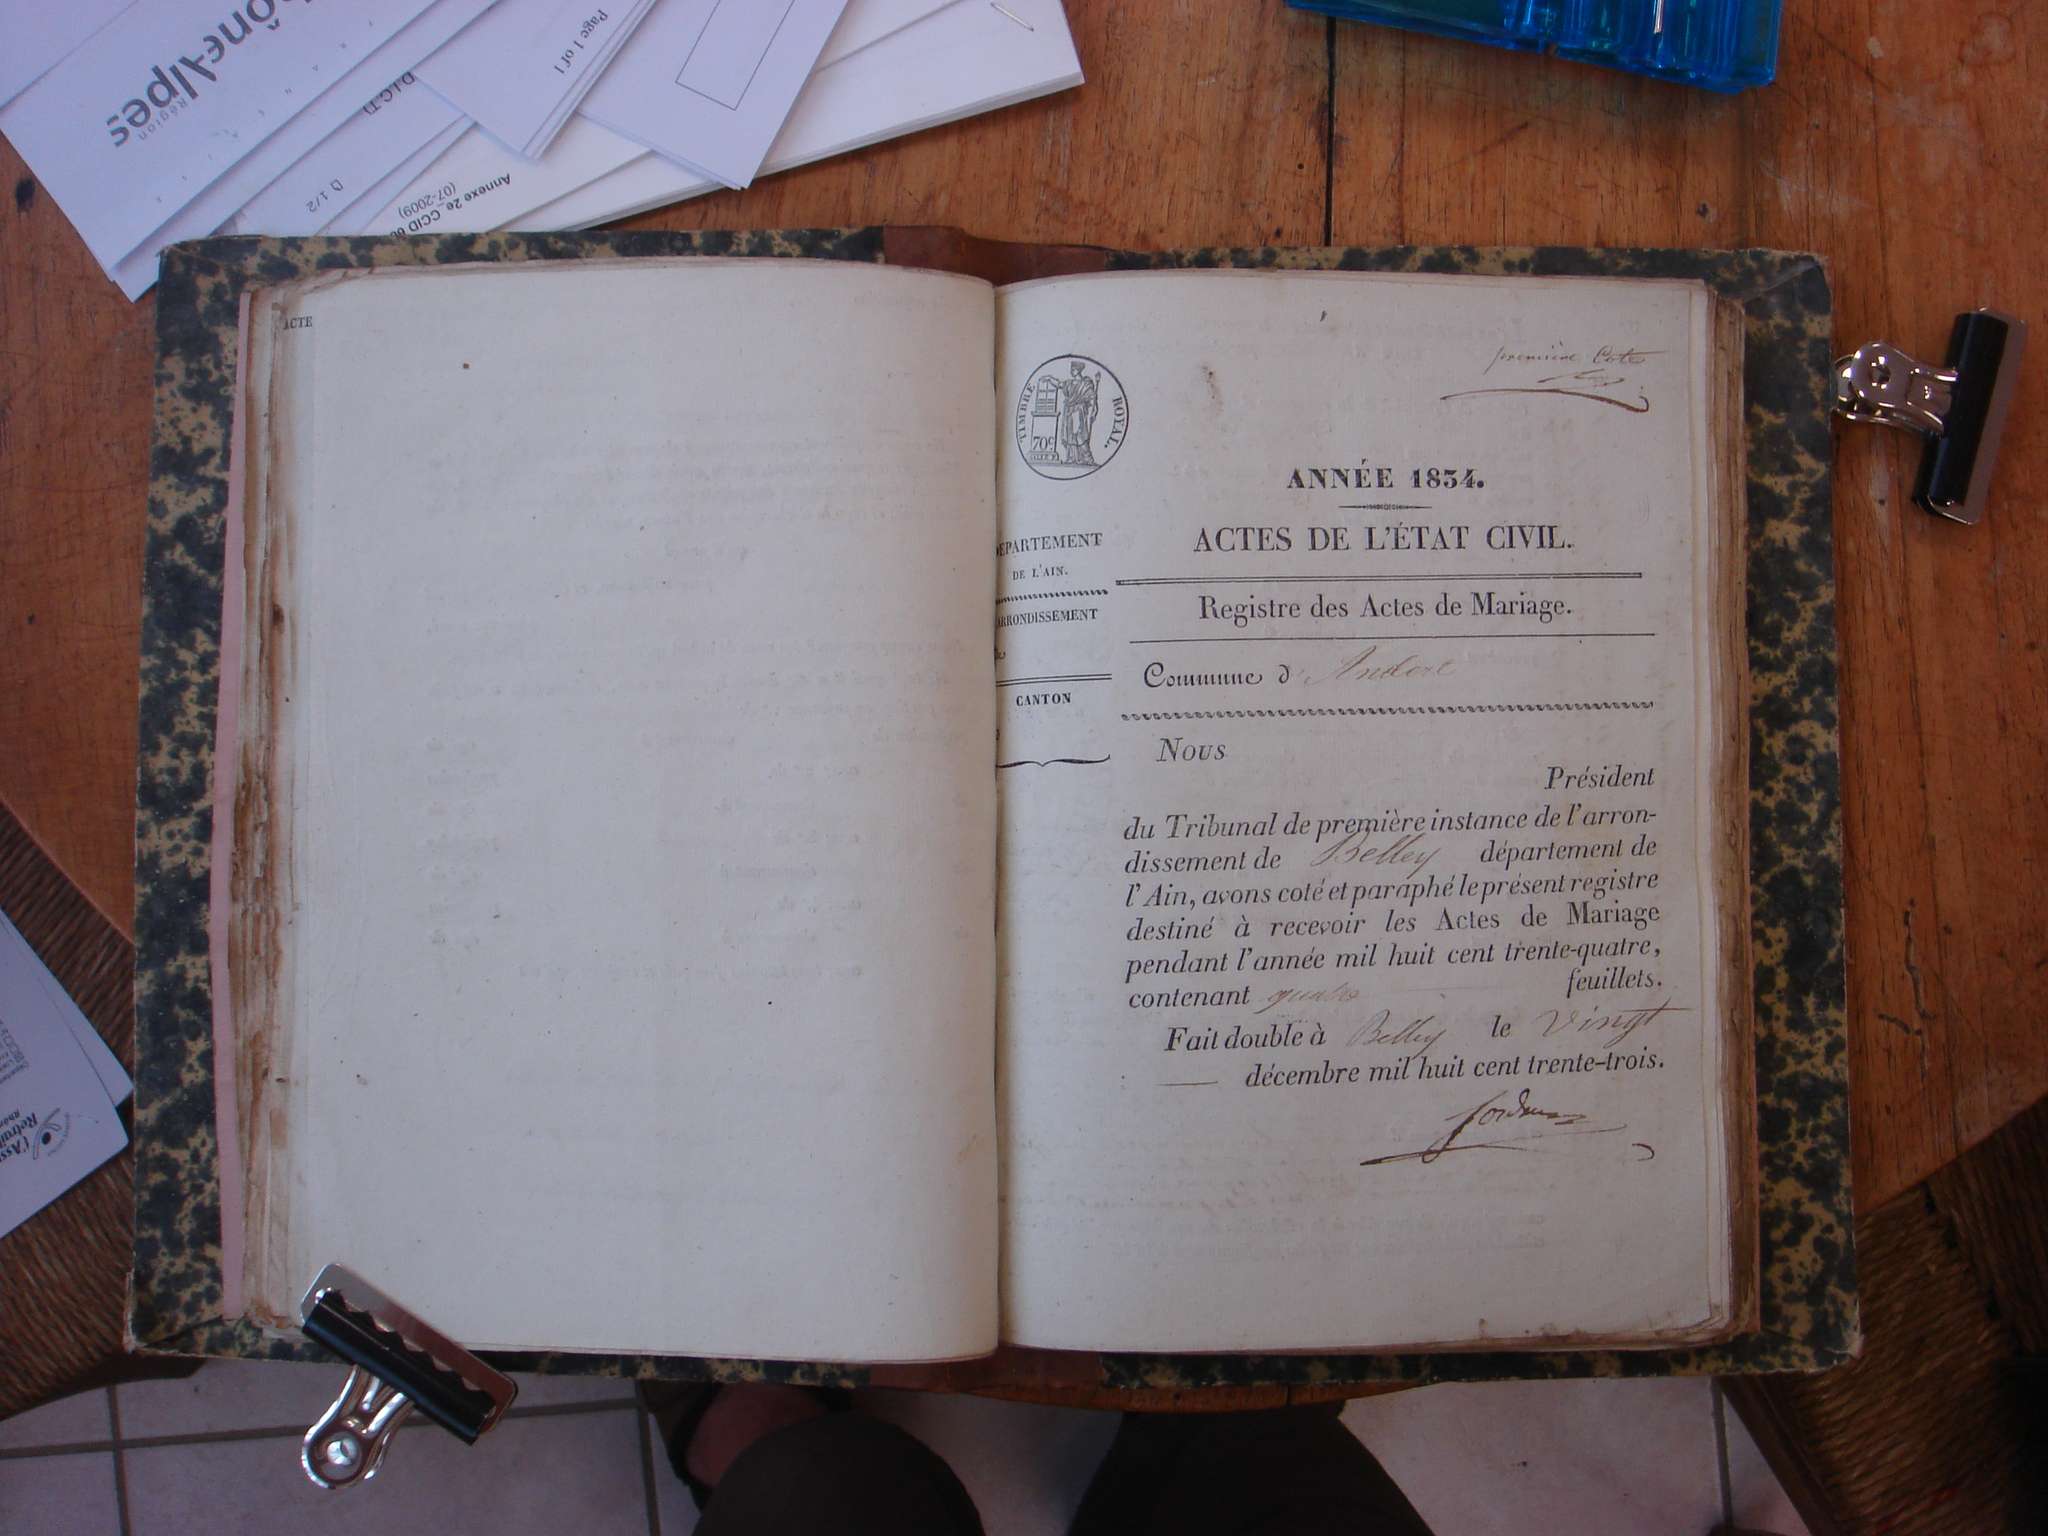 Rhône-Alpes
Région
Page 1 of 1
D.I.C.T)
D 1/2
Annexe 2e_CCID
(07-2009)
ACTE
première Cote
TIMBRE ROYAL.
70c
ANNÉE 1834.
ACTES DE L'ÉTAT CIVIL.
DEPARTEMENT
DE L'AIN.
Registre des Actes de Mariage.
ARRONDISSEMENT
Commune d'Andert
CANTON
Nous
Président
du Tribunal de première instance de l'arron-
dissement de Belley département de
l'Ain, avons coté et paraphé le présent registre
destiné à recevoir les Actes de Mariage
pendant l'année mil huit cent trente-quatre,
contenant quatre feuillets.
Fait double à Belley le vingt
décembre mil huit cent trente-trois.